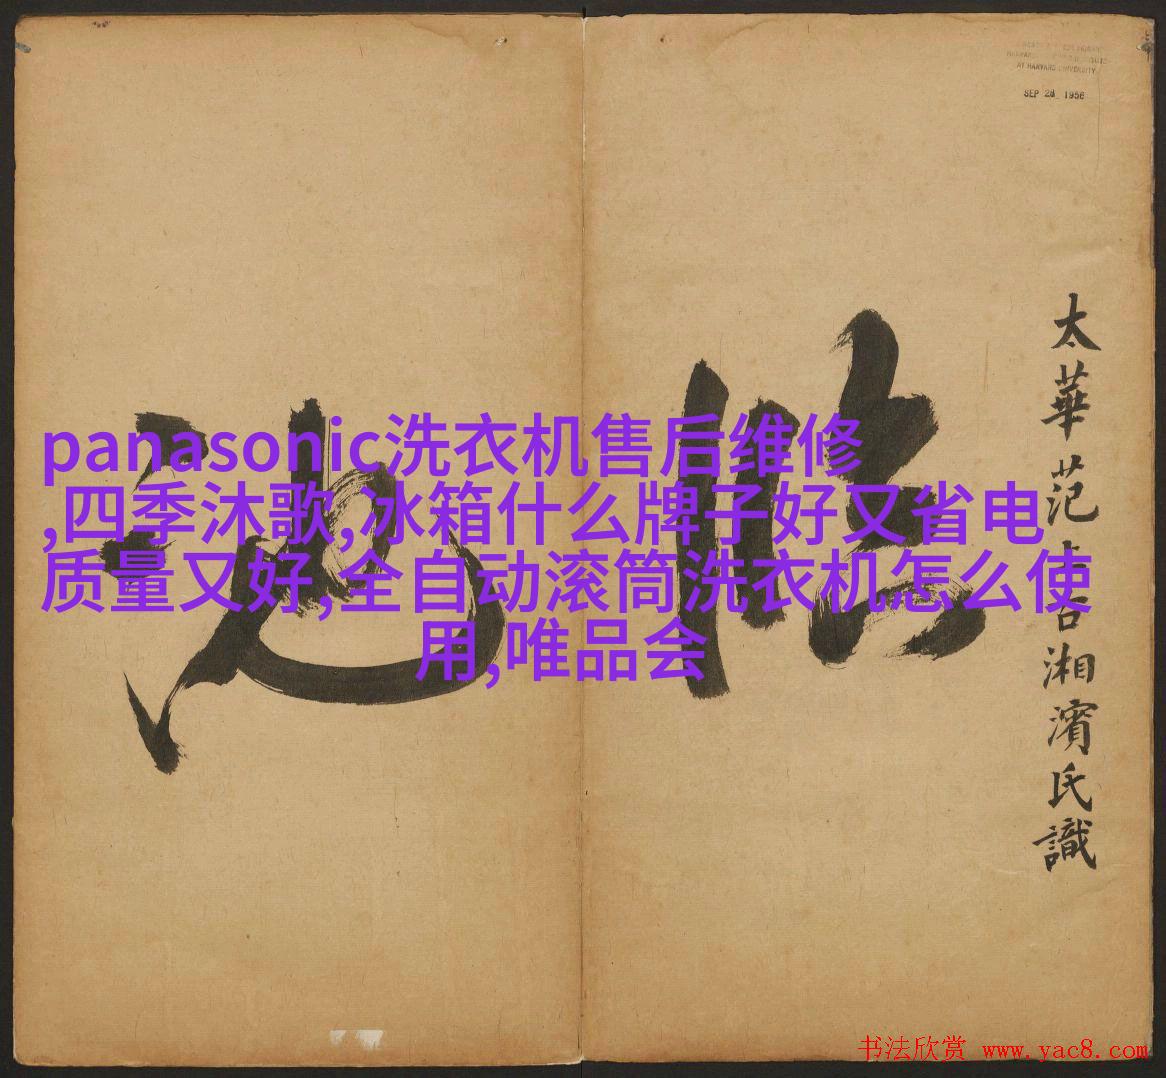 AT HARVARD UNIVERSITY
SEP 28 1956
panasonic洗衣机售后维修
,四季沐歌,冰箱什么牌子好又省电
质量又好,全自动滚筒洗衣机怎么使
用,唯品会
太華范
湘濱氏識
书法欣赏 www.yac8.com